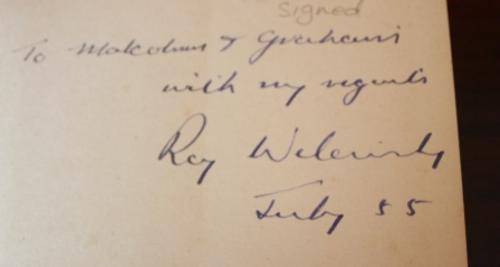 Signed
To Malcolm & Graham
with my regards
Roy Welensky
July 55